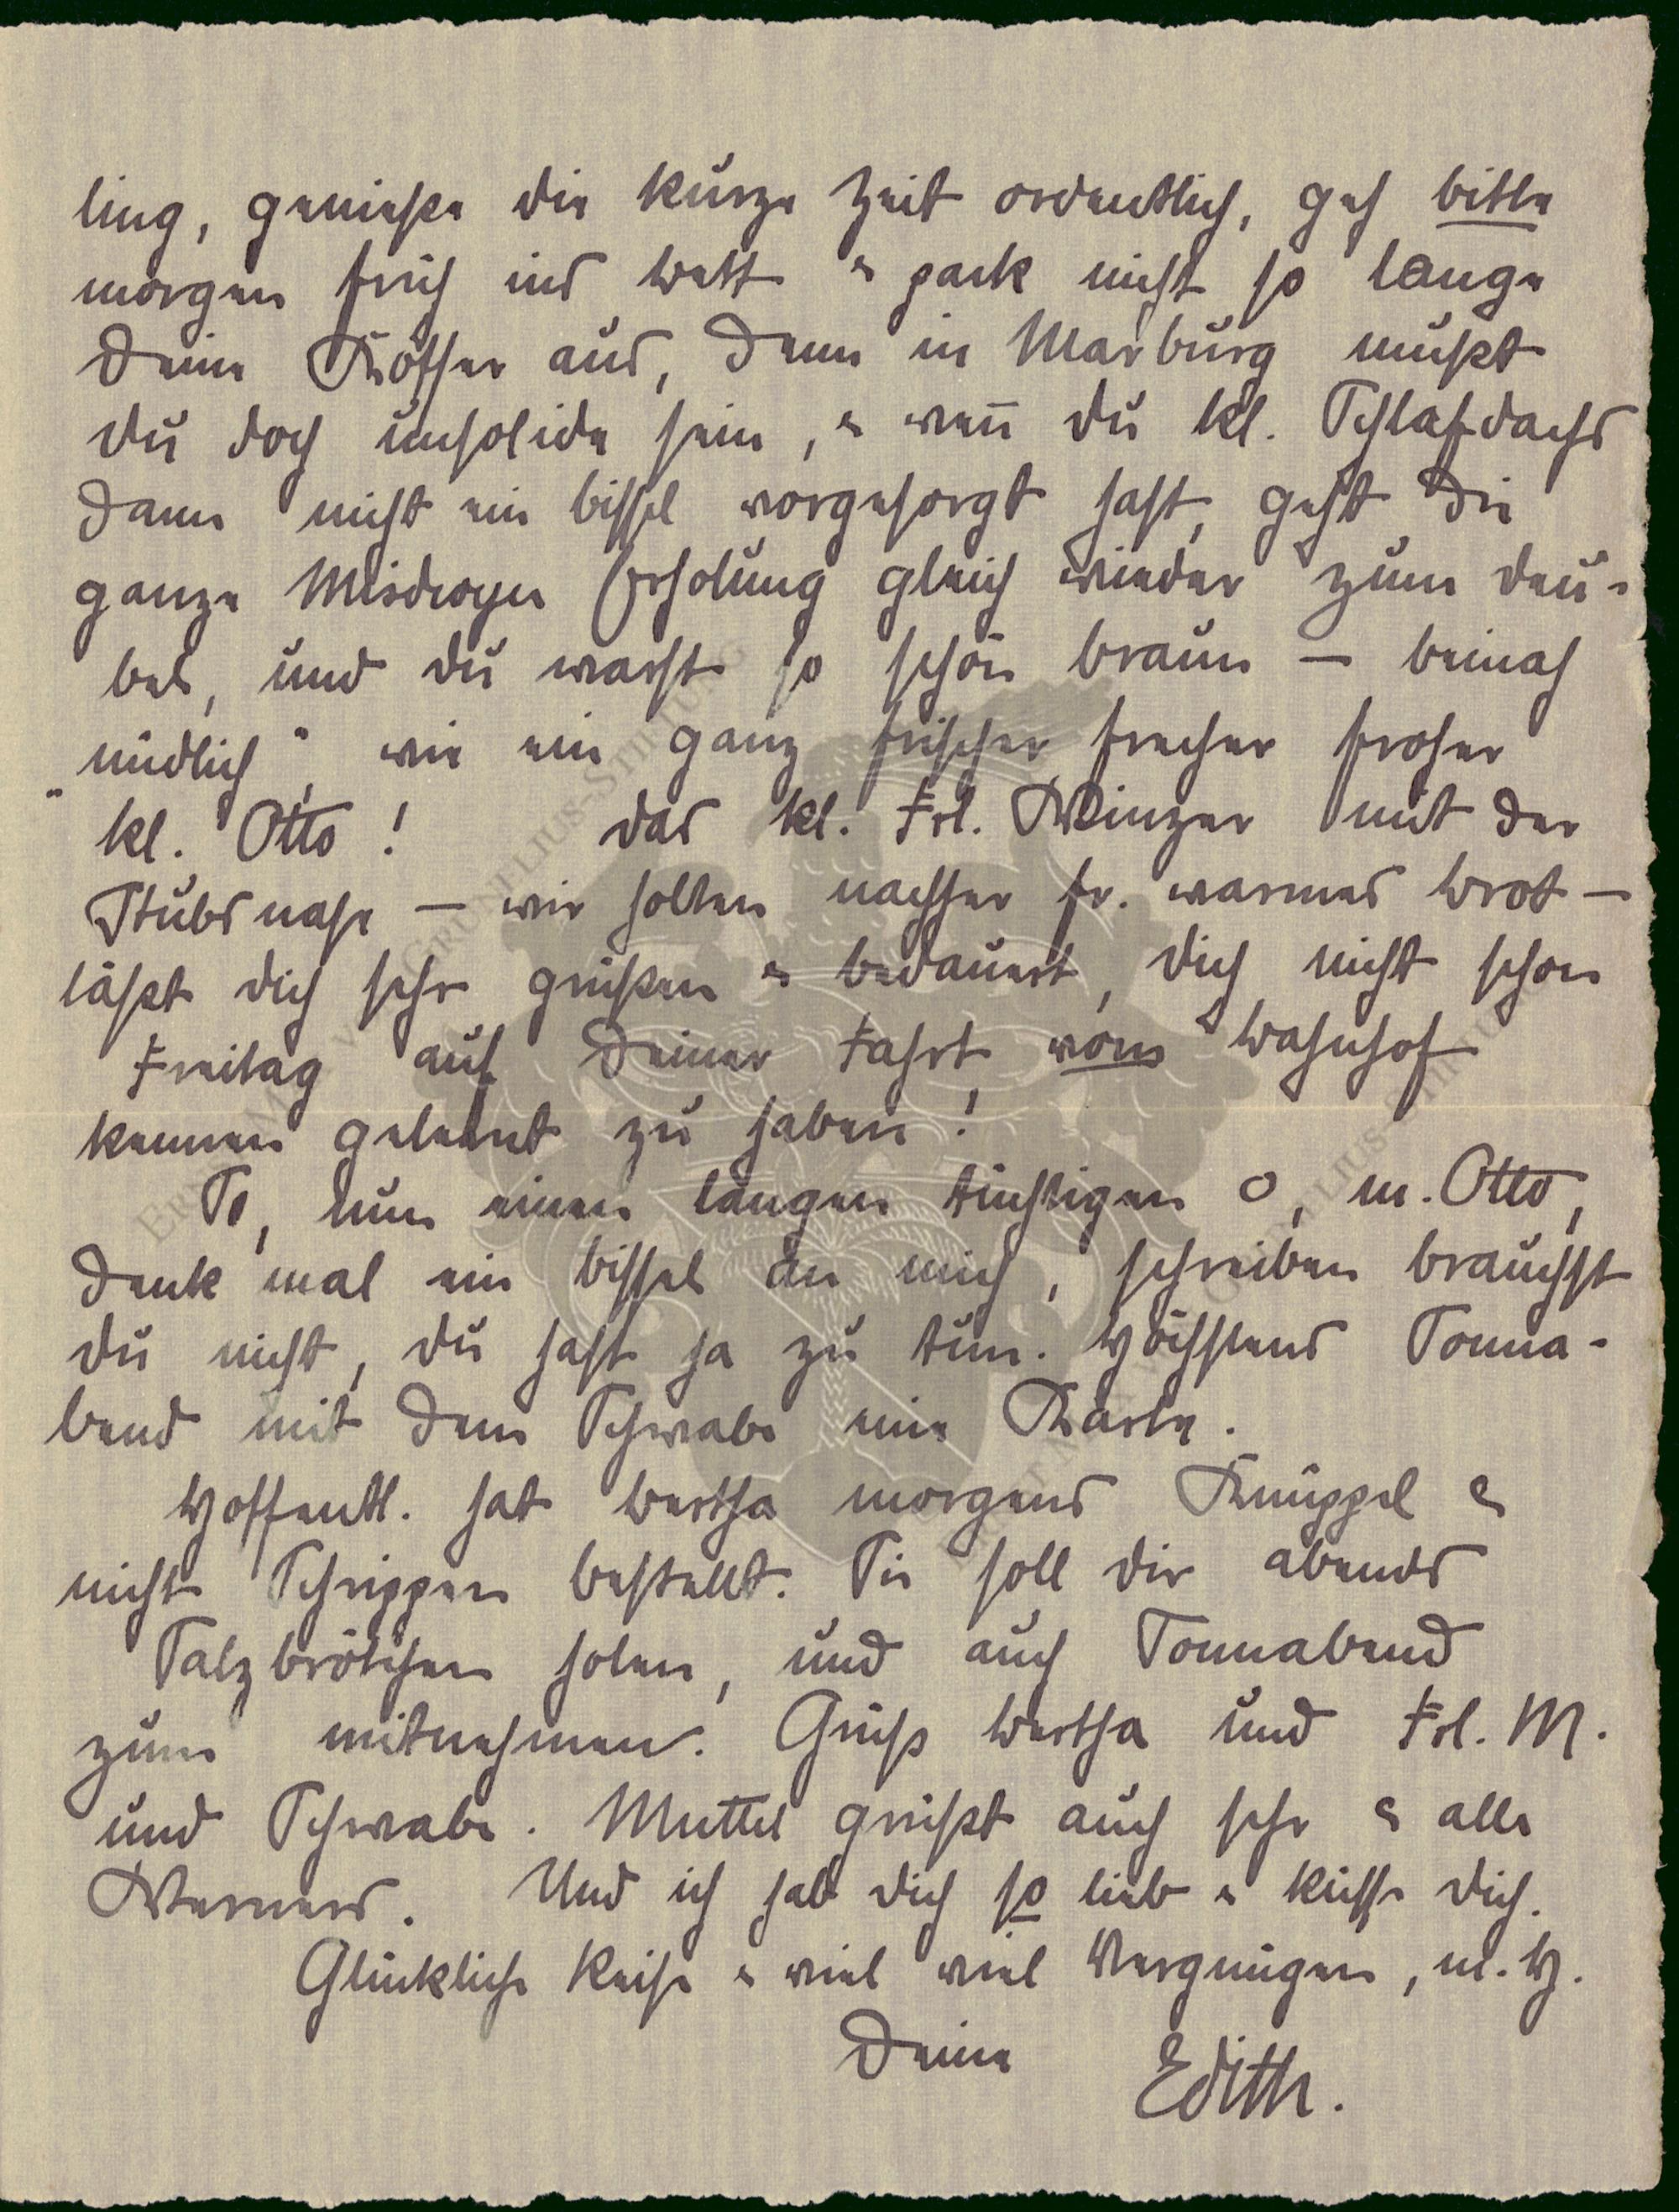 ling, genieße die kurze Zeit ordentlich, geh bitte
morgen früh ins Bett & pack nicht so lange
Deine Koffer aus, denn in Marburg mußt
du doch unsolide sein, & wen̄ du kl. Schlafdachs
dann nicht ein bissel vorgesorgt hast, geht die
ganze Misdroyer Erholung gleich wieder zum Deu-
bel, und du warst so schön braun – beinah
„niedlich“, wie ein ganz frischer frecher froher
kl. Otto! Das kl. Frl. Winzer mit der
Stubsnase – wir holten nachher fr. warmes Brot –
läßt dich sehr grüßen & bedauert, dich nicht schon
Freitag auf Deiner Fahrt vom Bahnhof
kennen gelernt zu haben!
So, nun einen langen tüchtigen o, m. Otto,
denk mal ein bissel an mich, schreiben brauchst
du nicht, du hast ja zu tun. Höchstens Sonna-
bend mit dem Schwabe eine Karte.
Hoffentl. hat Bertha morgens Knüppel &
nicht Schrippen bestellt. Sie soll dir abends
Salzbrötchen holen, und auch Sonnabend
zum mitnehmen. Grüß Bertha und Frl. M.
und Schwabe. Muttel grüßt auch sehr & alle
Werners. Und ich hab dich so lieb & küsse dich.
Glückliche Reise & viel viel Vergnügen, m. H.
Deine Edith.